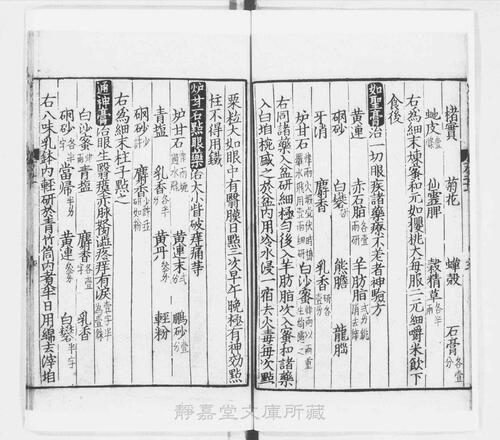 楮實 菊花 蟬殼 石膏各壹分
蛇皮壹條 仙靈脾 穀精草各半兩
右爲細末煉蜜和元如櫻桃大每服二元細嚼米飲下
食後
如聖膏治一切眼疾諸藥療不差者神驗方
黄連 赤石脂 羊肪脂
硇砂 白礬 熊膽 龍腦
牙消 麝香 乳香
白沙蜜
右同諸藥入盆研細極勻後入羊肪脂次入蜜和諸藥
入臼堝椀盛之於盆内用冷水浸一宿去火毒每次點
粟粒大如眼中有瞖膜日點三次早午晚極有神効點
柱不得用鐵
炉甘石點眼藥治大小眥破痒痛等
炉甘石 黄連末 鵬砂
青鹽 乳香 黄丹 輕粉
硇砂 麝香
右爲細末柱子點之
通神膏治眼生瞖膜赤脉獨澁疼痒有淚
白沙蜜 青鹽 麝香 乳香
硇砂 當歸 黄連 白礬
右八味乳鉢内輕研於青竹筒内煮半日用綿去滓堝
靜嘉堂文庫所藏